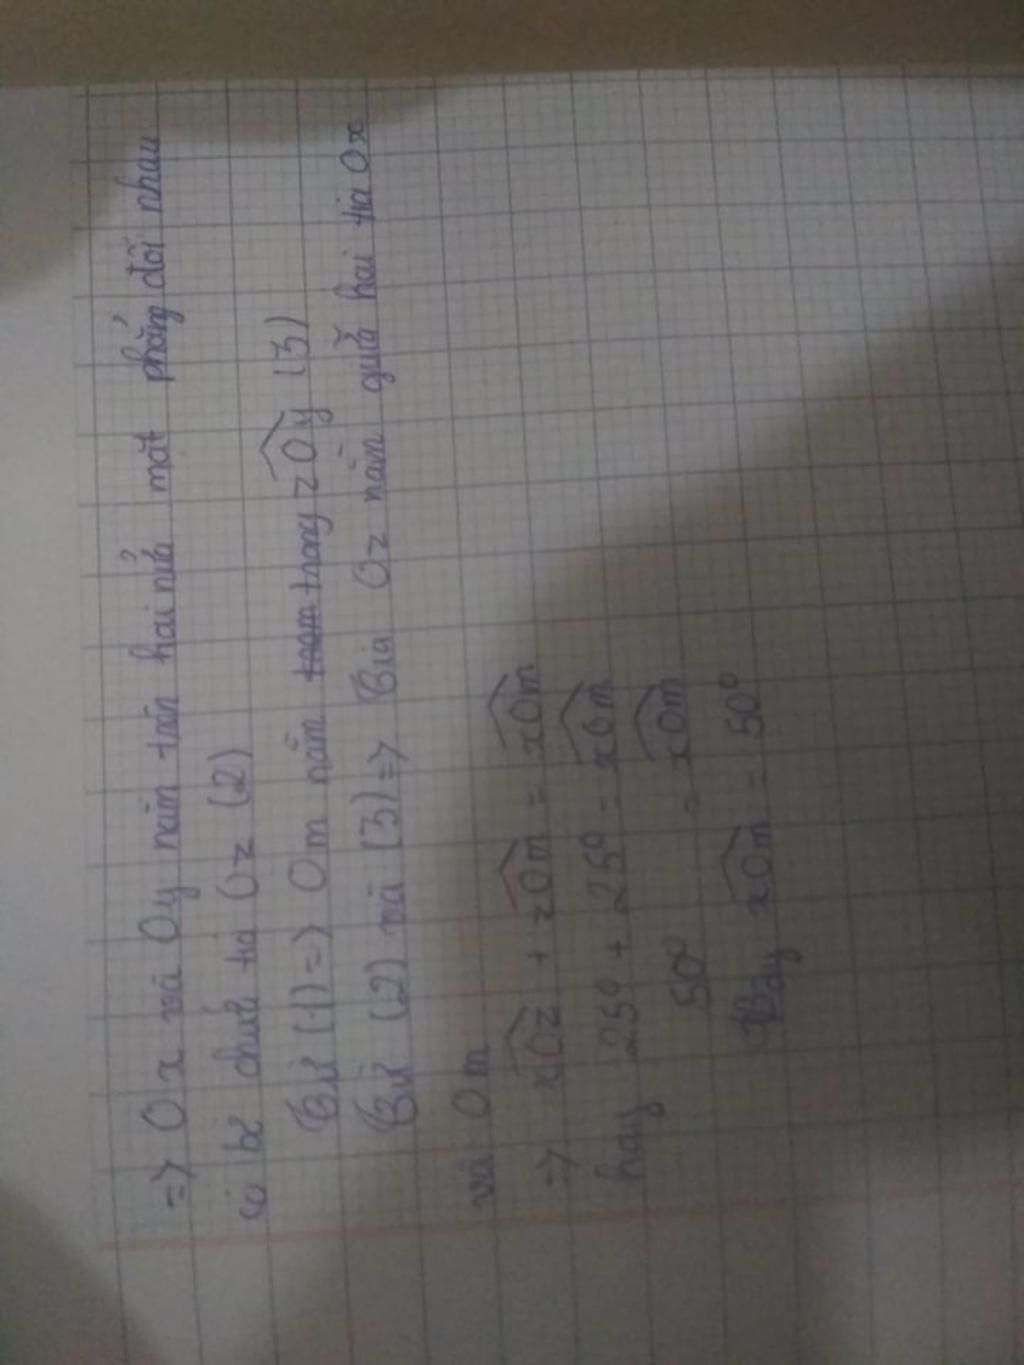 => Ox và Oy nằm trên hai nửa mặt phẳng đối nhau
có bờ chứa tia Oz (2)
Từ (1) => Om nằm trong zOy (3)
Từ (2) và (3) => Tia Oz nằm giữa hai tia Ox
và Om
=> xOz + zOm = xOm
hay 25° + 25° = xOm
50° = xOm
Vậy xOm = 50°